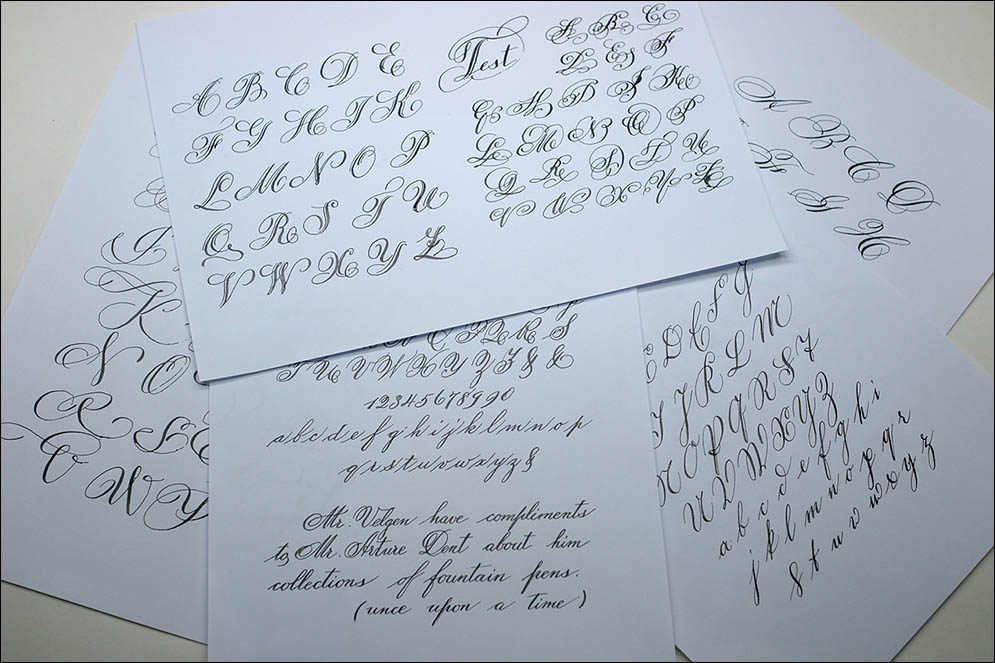 A B C D E
F G H I K
L M N O P
Q R S T U
V W X Y Z
Test
A B C
D E F
G H D I K
L M N O P
Q R S T U
V W X Y Z
A B C D
F G H
I
K
N O
R S
T
W Y
T U V W X Y Z & &
1234567890
a b c d e f g h i j k l m n o p
q r s t u v w x y z &
Mr. Velgen have compliments
to Mr. Arture Dent about him
collections of fountain pens.
(unce upon a time)
D E F G
I J K L M
N O P Q R S T
U V W X Y Z
a b c d e f g h i
j k l m n o p q r
s t u v w x y z